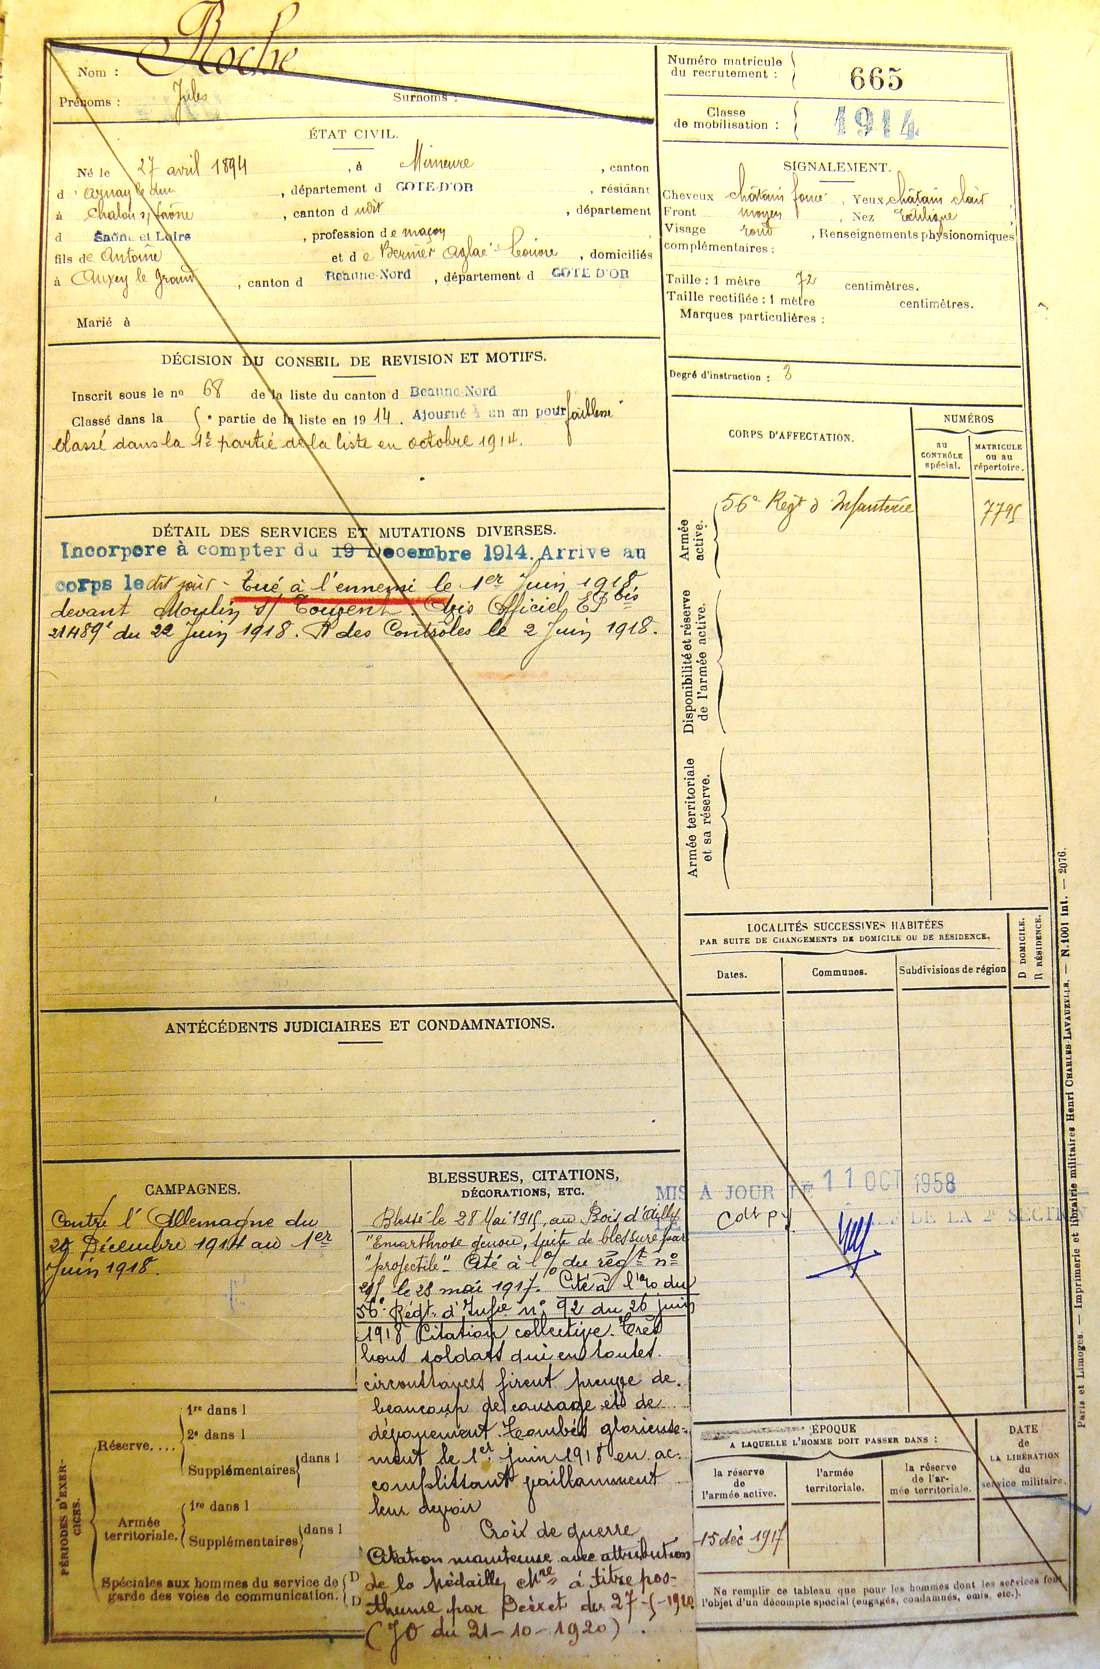 Nom : Roche
Prénoms : Jules Surnoms :
Numéro matricule du recrutement : 665
Classe de mobilisation : 1914
ÉTAT CIVIL.
Né le 27 avril 1894, à Mimeure, canton
d'Arnay le duc, département d COTE-D'OR, résidant
à Chalon s/ Saône, canton d udit, département
d Saône et Loire, profession de maçon
fils de Antoine et de Bernier Aglaé Louise, domiciliés
à Auxey le Grand, canton d Beaune-Nord, département d COTE D'OR
Marié à
SIGNALEMENT.
Cheveux châtain foncé, Yeux châtain clair
Front moyen, Nez rectiligne
Visage rond, Renseignements physionomiques
complémentaires :
Taille : 1 mètre 72 centimètres.
Taille rectifiée : 1 mètre centimètres.
Marques particulières :
Degré d'instruction : 3
DÉCISION DU CONSEIL DE REVISION ET MOTIFS.
Inscrit sous le nº 68 de la liste du canton d Beaune-Nord
Classé dans la 5e partie de la liste en 1914. Ajourné à un an pour faiblesse
Classé dans la 1e partie de la liste en octobre 1914.
DÉTAIL DES SERVICES ET MUTATIONS DIVERSES.
Incorporé à compter du 19 Decembre 1914. Arrivé au
corps le dit jour - Tué à l'ennemi le 1er Juin 1918
devant Moulin s/ Touvent. Avis Officiel EP bis
21489 du 22 Juin 1918. R des Contrôles le 2 Juin 1918.
CORPS D'AFFECTATION.
NUMÉROS
au CONTRÔLE spécial.
MATRICULE ou au répertoire.
Armée active.
56e Regt d'Infanterie 7795
Disponibilité et réserve de l'armée active.
Armée territoriale et sa réserve.
LOCALITÉS SUCCESSIVES HABITÉES
PAR SUITE DE CHANGEMENTS DE DOMICILE OU DE RÉSIDENCE.
Dates. Communes. Subdivisions de région
D DOMICILE.
R RÉSIDENCE.
ANTÉCÉDENTS JUDICIAIRES ET CONDAMNATIONS.
MIS À JOUR LE 11 OCT 1958
DE LA 2e SECTION
CAMPAGNES.
Contre l'Allemagne du
Décembre 1914 au 1er
Juin 1918.
BLESSURES, CITATIONS,
DÉCORATIONS, ETC.
Blessé le 28 Mai 1915, au Bois d'Ailly
"Emarthrose genou, suite de blessure par
"projectile". Cité à l'o/ du régt nº
215 le 28 mai 1917. Cité à l'ro du
56e Régt. d'Infie nº 92 du 26 juin
1918 Citation collective. Très
bons soldats qui en toutes
circonstances firent preuve de
beaucoup de courage et de
dévouement. Tombés glorieuse-
ment le 1er juin 1918 en ac-
complissant vaillamment
leur devoir
Croix de guerre
Citation maintenue avec attribution
de la Médaille Mre à titre pos-
thume par Décret du 27-5-1920
(JO du 21-10-1920).
PÉRIODES D'EXERCICES.
Réserve....
1re dans l
2e dans l
Supplémentaires dans l
Armée territoriale.
1re dans l
Supplémentaires dans l
Spéciales aux hommes du service de garde des voies de communication. D D
ÉPOQUE
A LAQUELLE L'HOMME DOIT PASSER DANS :
DATE de LA LIBÉRATION du service militaire.
la réserve de l'armée active.
l'armée territoriale.
la réserve de l'armée territoriale.
15 déc 1917
Ne remplir ce tableau que pour les hommes dont les services font
l'objet d'un décompte spécial (engagés, condamnés, omis, etc.).
Paris et Limoges. — Imprimerie et librairie militaires Henri CHARLES-LAVAUZELLE. — N. 1001 int. — 2076.